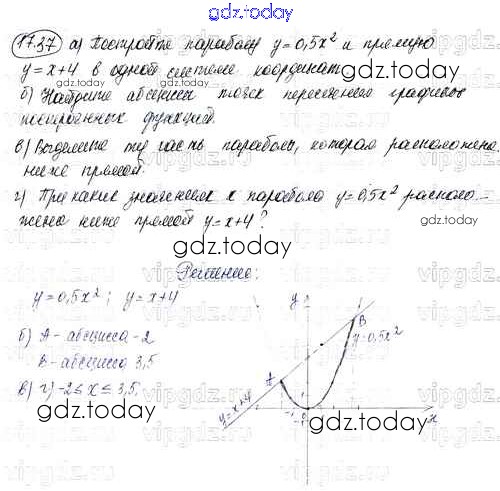 gdz.today
17.37 а) Постройте параболу y=0,5x² и прямую
y=x+4 в одной системе координат
б) Найдите абсциссы точек пересечения графиков
построенных функций.
в) Выделите ту часть параболы, которая расположена
ниже прямой.
г) При каких значениях x парабола y=0,5x² располо-
жена ниже прямой y=x+4?
gdz.today
Решение:
y=0,5x²; y=x+4
б) А - абсцисса -2
В - абсцисса 3,5
в) г) -2≤x≤3,5
gdz.today
y
B
y=0,5x²
A
y=x+4
-1
0
x
gdz.today